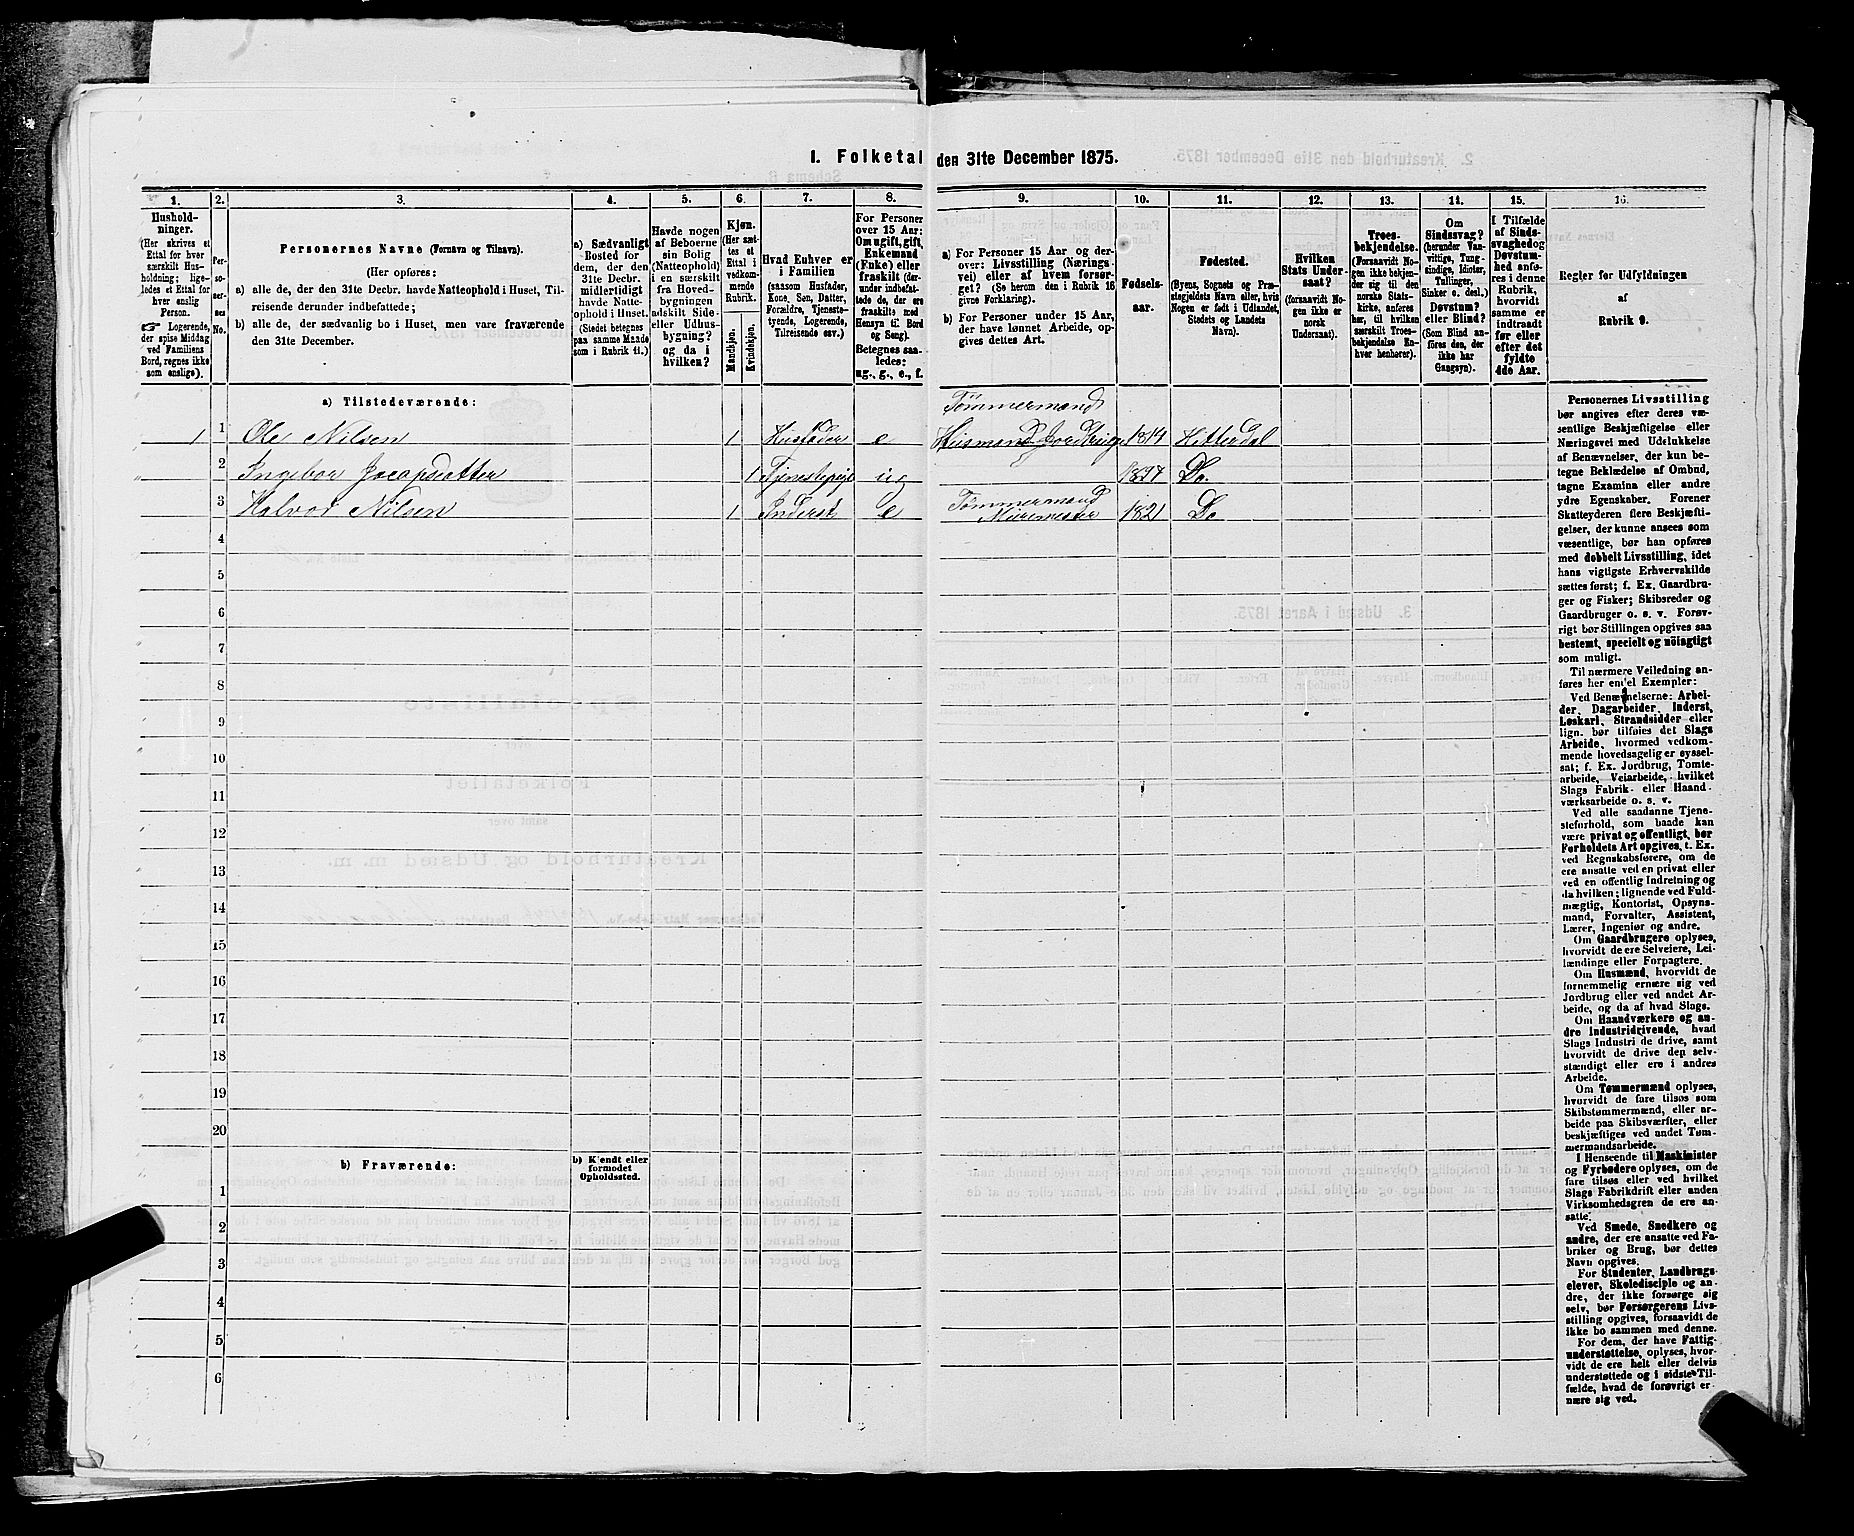 I. Folketal den 31te December 1875.
1. 2. 3. 4. 5. 6. 7. 8. 9. 10. 11. 12. 13. 14. 15. 16.
Hushold-
ninger.
(Her skrives et
Ettal for hver
særskilt Hus-
holdning; lige-
ledes et Ettal for
hver enslig
Person.
☞ Logerende,
der spise Middag
ved Familiens
Bord, regnes ikke
som enslige).
Per-
so-
ner-
nes
No.
Personernes Navne (Fornavn og Tilnavn).
(Her opføres:
a) alle de, der den 31te Decbr. havde Natteophold i Huset, Til-
reisende derunder indbefattede;
b) alle de, der sædvanlig bo i Huset, men vare fraværende
den 31te December.
a) Sædvanligt
Bosted for
dem, der den
31te Decbr.
midlertidigt
havde Natte-
ophold i Huset.
(Stedet betegnes
paa samme Maade
som i Rubrik 11.)
Havde nogen
af Beboerne
sin Bolig
(Natteophold)
i en særskilt
fra Hoved-
bygningen
adskilt Side-
eller Udhus-
bygning?
og da i
hvilken?
Kjøn.
(Her sæt-
tes et
Ettal i
vedkom-
mende
Rubrik.
Mandkjøn.
Kvindekjøn.
Hvad Enhver er
i Familien
(saasom Husfader,
Kone, Søn, Datter,
Forældre, Tjeneste-
tyende, Logerende,
Tilreisende osv.)
For Personer
over 15 Aar:
Om ugift, gift,
Enkemand
(Enke) eller
fraskilt (der-
under indbefat-
tede de, der ere
fraskilte med
Hensyn til Bord
og Seng).
Betegnes saa-
ledes:
ug., g., e., f.
a) For Personer 15 Aar og der-
over: Livsstilling (Nærings-
vei) eller af hvem forsør-
get? (Se herom den i Rubrik 16
givne Forklaring).
b) For Personer under 15 Aar,
der have lønnet Arbeide, op-
gives dettes Art.
Fødsels-
aar.
Fødested.
(Byens, Sognets og Præ-
stegjeldets Navn eller, hvis
Nogen er født i Udlandet,
Stedets og Landets
Navn).
Hvilken
Stats Under-
saat?
(forsaavidt No-
gen ikke er
norsk
Undersaat).
Troes-
bekjendelse.
(Forsaavidt No-
gen ikke bekjen-
der sig til den
norske Stats-
kirke, anføres
her, til hvilken
særskilt Troes-
bekjendelse En-
hver henhører).
Om
Sindssvag?
(herunder Van-
vittige, Tung-
sindige, Idioter,
Tullinger,
Sinker o. desl.)
Døvstum?
eller Blind?
(Som Blind an-
føres den, der
ikke har
Gangsyn).
I Tilfælde
af Sinds-
svaghed og
Døvstum-
hed anfø-
res i denne
Rubrik,
hvorvidt
samme er
indtraadt
før eller
efter det
fyldte
4de Aar.
Regler for Udfyldningen
af
Rubrik 9.
a) Tilstedeværende:
Tømmermand
1 1 Ole Nilsen 1 Husfader e Husmand Jordbrug 1814 Hitterdal
2 Ingebor Jocapsdatter 1 Tjenestepige ug Do.
Tømmermand
3 Halvor Nilsen 1 Inderst e Muremester 1821 Do
4
5
6
7
8
9
10
11
12
13
14
15
16
17
18
19
20
b) Fraværende:
b) Kjendt eller
formodet
Opholdssted.
1
2
3
4
5
6
Personernes Livsstilling
bør angives efter deres væ-
sentlige Beskjæftigelse eller
Næringsvei med Udelukkelse
af Benævnelser, der kun be-
tegne Beklædelse af Ombud,
tagne Examina eller andre
ydre Egenskaber. Forener
Skatteyderen flere Beskjæfti-
gelser, der kunne ansees som
væsentlige, bør han opføres
med dobbelt Livsstilling, idet
hans vigtigste Erhvervskilde
sættes først; f. Ex. Gaardbru-
ger og Fisker; Skibsreder og
Gaardbruger o. s. v. Forøv-
rigt bør Stillingen opgives saa
bestemt, specielt og nöiagtigt
som muligt.
Til nærmere Veiledning an-
føres her endel Exempler:
Ved Benævnelserne: Arbei-
der, Dagarbeider, Inderst,
Løskarl, Strandsidder eller
lign. bør tilføies det Slags
Arbeide, hvormed vedkom-
mende hovedsagelig er syssel-
sat; f. Ex. Jordbrug, Tomte-
arbeide, Veiarbeide, hvilket
Slags Fabrik- eller Haand-
værksarbeide o. s. v.
Ved alle saadanne Tjene-
steforhold, som baade kan
være privat og offentligt, bør
Forholdets Art opgives, t. Ex.
ved Regnskabsførere, om de
ere ansatte ved en privat eller
ved en offentlig Indretning og
da hvilken; lignende ved Fuld-
mægtig, Kontorist, Opsyns-
mand, Forvalter, Assistent,
Lærer, Ingeniør og andre.
Om Gaardbrugere oplyses,
hvorvidt de ere Selveiere, Lei-
lændinge eller Forpagtere.
Om Husmænd, hvorvidt de
fornemmelig ernære sig ved
Jordbrug eller ved andet Ar-
beide, og da af hvad Slags.
Om Haandværkere og an-
dre Industridrivende, hvad
Slags Industri de drive, samt
hvorvidt de drive den selv-
stændigt eller ere i andres
Arbeide.
Om Tømmermænd oplyses,
hvorvidt de fare tilsøs som
Skibstømmermænd, eller ar-
beide paa Skibsværfter, eller
beskjæftiges ved andet Tøm-
mermandsarbeide.
I Henseende til Maskinister
og Fyrbødere oplyses, om de
fare tilsøs eller ved hvilket
Slags Fabrikdrift eller anden
Virksomhedsgren de ere an-
satte.
Ved Smede, Snedkere og
andre, der ere ansatte ved Fa-
briker og Brug, bør dettes
Navn opgives.
For Studenter, Landbrugs-
elever, Skoledisciple og an-
dre, der ikke forsørge sig
selv, bør Forsørgerens Livs-
stilling opgives, forsaavidt de
ikke bo sammen med denne.
For dem, der have Fattig-
understøttelse, oplyses, hvor-
vidt de ere helt eller delvis
understøttede og i sidste Til-
fælde, hvad de forøvrigt er-
nære sig ved.